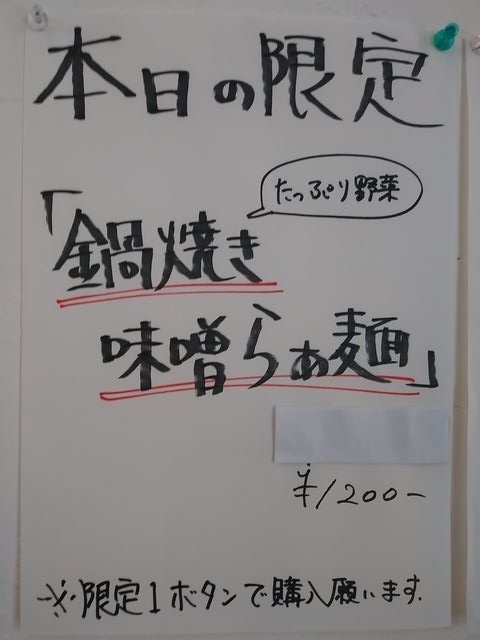 本日の限定
たっぷり野菜
「鍋焼き
味噌らぁ麺」
¥1200-
※限定1ボタンで購入願います.